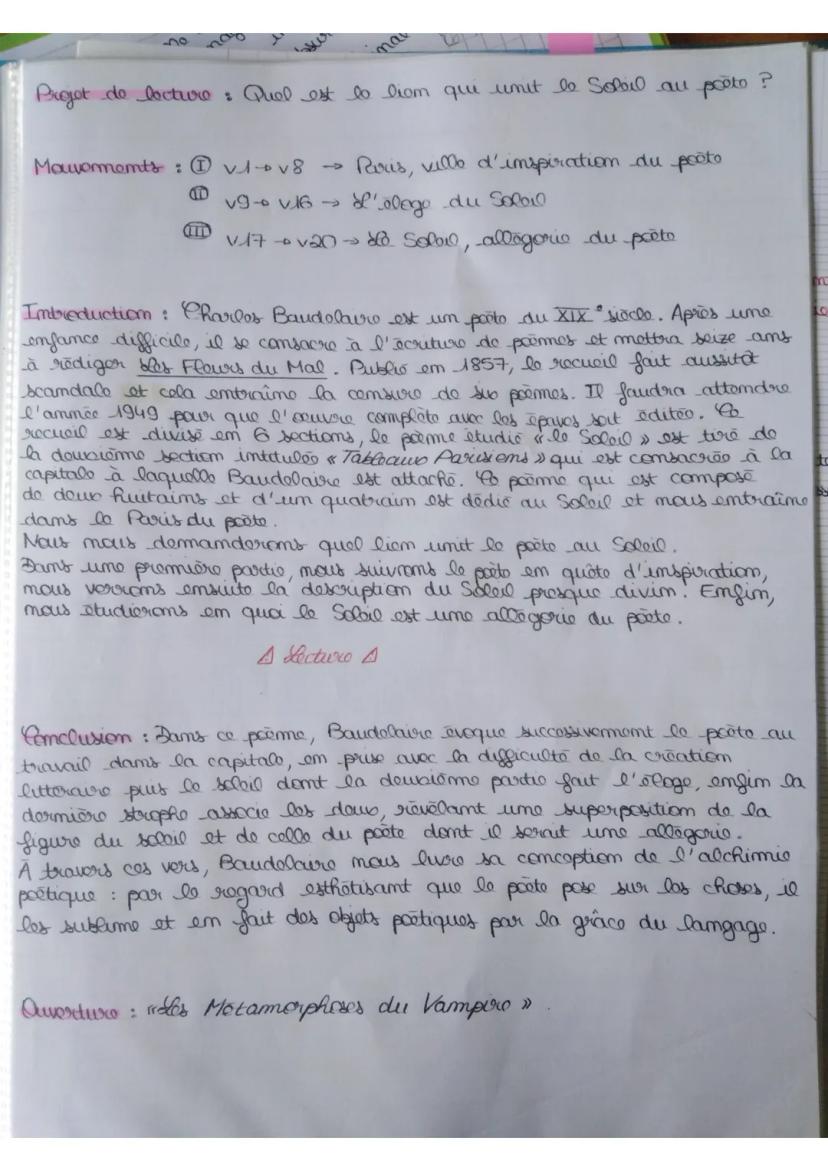 no
mal
Projet de lecture : Quel est le lien qui unit le Soleil au poète ?
Mouvements : I v1 → v8 → Paris, ville d'inspiration du poète
II v9 → v16 → L'éloge du Soleil
III v17 → v20 → Le Soleil, allégorie du poète
Introduction : Charles Baudelaire est un poète du XIXe siècle. Après une
enfance difficile, il se consacre à l'écriture de poèmes et mettra seize ans
à rédiger Les Fleurs du Mal. Publié en 1857, le recueil fait aussitôt
scandale et cela entraîne la censure de six poèmes. Il faudra attendre
l'année 1949 pour que l'oeuvre complète avec les épaves soit éditée. Ce
recueil est divisé en 6 sections, le poème étudié « le Soleil » est tiré de
la deuxième section intitulée « Tableaux Parisiens » qui est consacrée à la
capitale à laquelle Baudelaire est attaché. Ce poème qui est composé
de deux huitains et d'un quatrain est dédié au Soleil et nous entraîne
dans le Paris du poète.
Nous nous demanderons quel lien unit le poète au Soleil.
Dans une première partie, nous suivrons le poète en quête d'inspiration,
nous verrons ensuite la description du Soleil presque divin. Enfin,
nous étudierons en quoi le Soleil est une allégorie du poète.
⚠ Lecture ⚠
Conclusion : Dans ce poème, Baudelaire évoque successivement le poète au
travail dans la capitale, en prise avec la difficulté de la création
littéraire puis le soleil dont la deuxième partie fait l'éloge, enfin la
dernière strophe associe les deux, révélant une superposition de la
figure du soleil et de celle du poète dont il serait une allégorie.
À travers ces vers, Baudelaire nous livre sa conception de l'alchimie
poétique : par le regard esthétisant que le poète pose sur les choses, il
les sublime et en fait des objets poétiques par la grâce du langage.
Ouverture : « Les Métamorphoses du Vampire ».